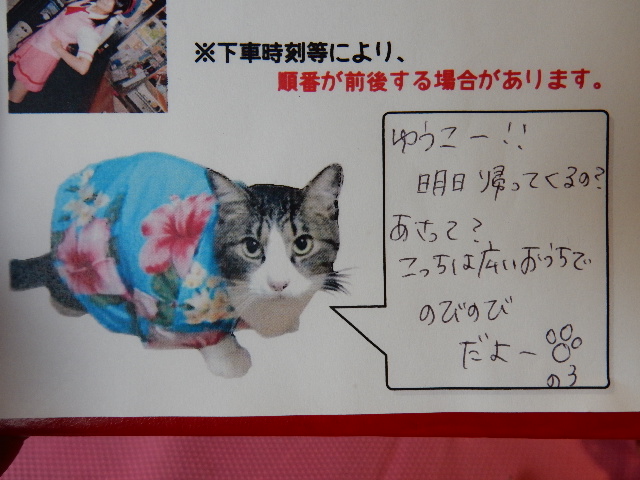 ※下車時刻等により、
順番が前後する場合があります。
ゆうこー!!
明日帰ってくるの?
あさって?
こっちは広いおうちで
のびのび
だよー
のろ